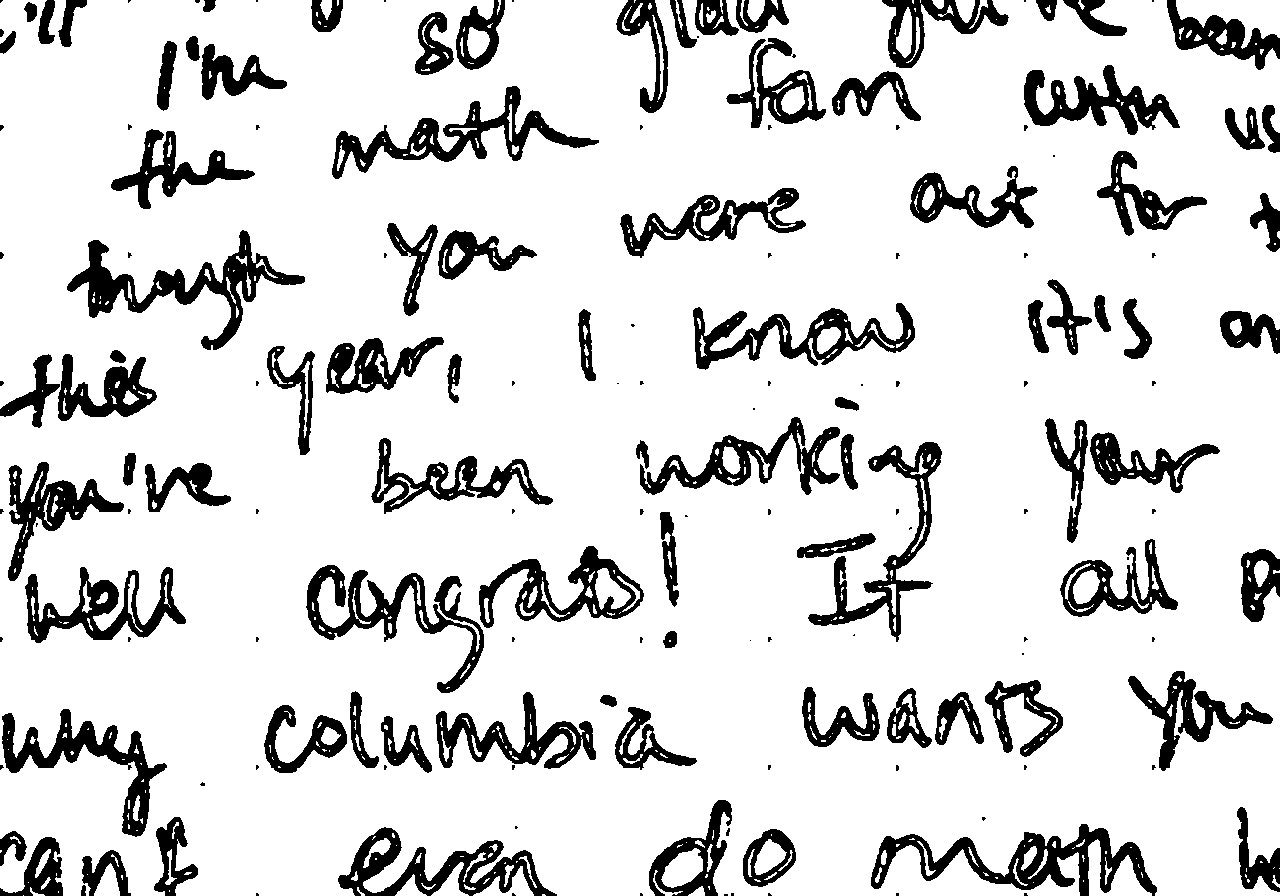 I'm so glad you've been
the math fam with us
though you were out for
this year, I know it's
you've been working your
well congrats! It all
why columbia wants you
can't even do math